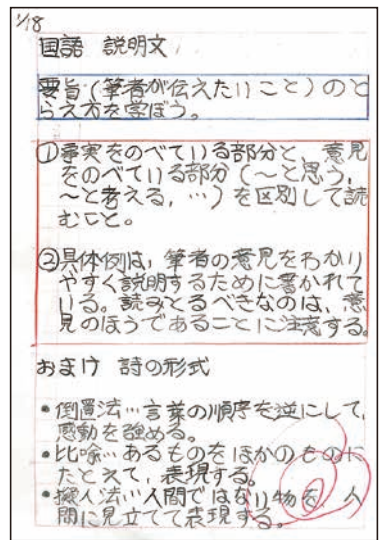 1/18
国語 説明文
要旨(筆者が伝えたいこと)のと
らえ方を学ぼう。
①事実をのべている部分と、意見
をのべている部分(〜と思う、
〜と考える、…)を区別して読
むこと。
②具体例は、筆者の意見をわかり
やすく説明するために書かれて
いる。読みとるべきなのは、意
見のほうであることに注意する。
おまけ 詩の形式
・倒置法…言葉の順序を逆にして、
感動を強める。
・比喩…あるものをほかのものに
たとえて、表現する。
・擬人法…人間ではない物を、人
間に見立てて表現する。